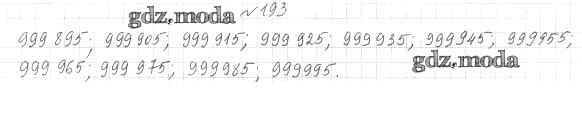 gdz.moda №193
999 895; 999 905; 999 915; 999 925; 999 935; 999 945; 999 955;
999 965; 999 975; 999 985; 999 995.
gdz.moda